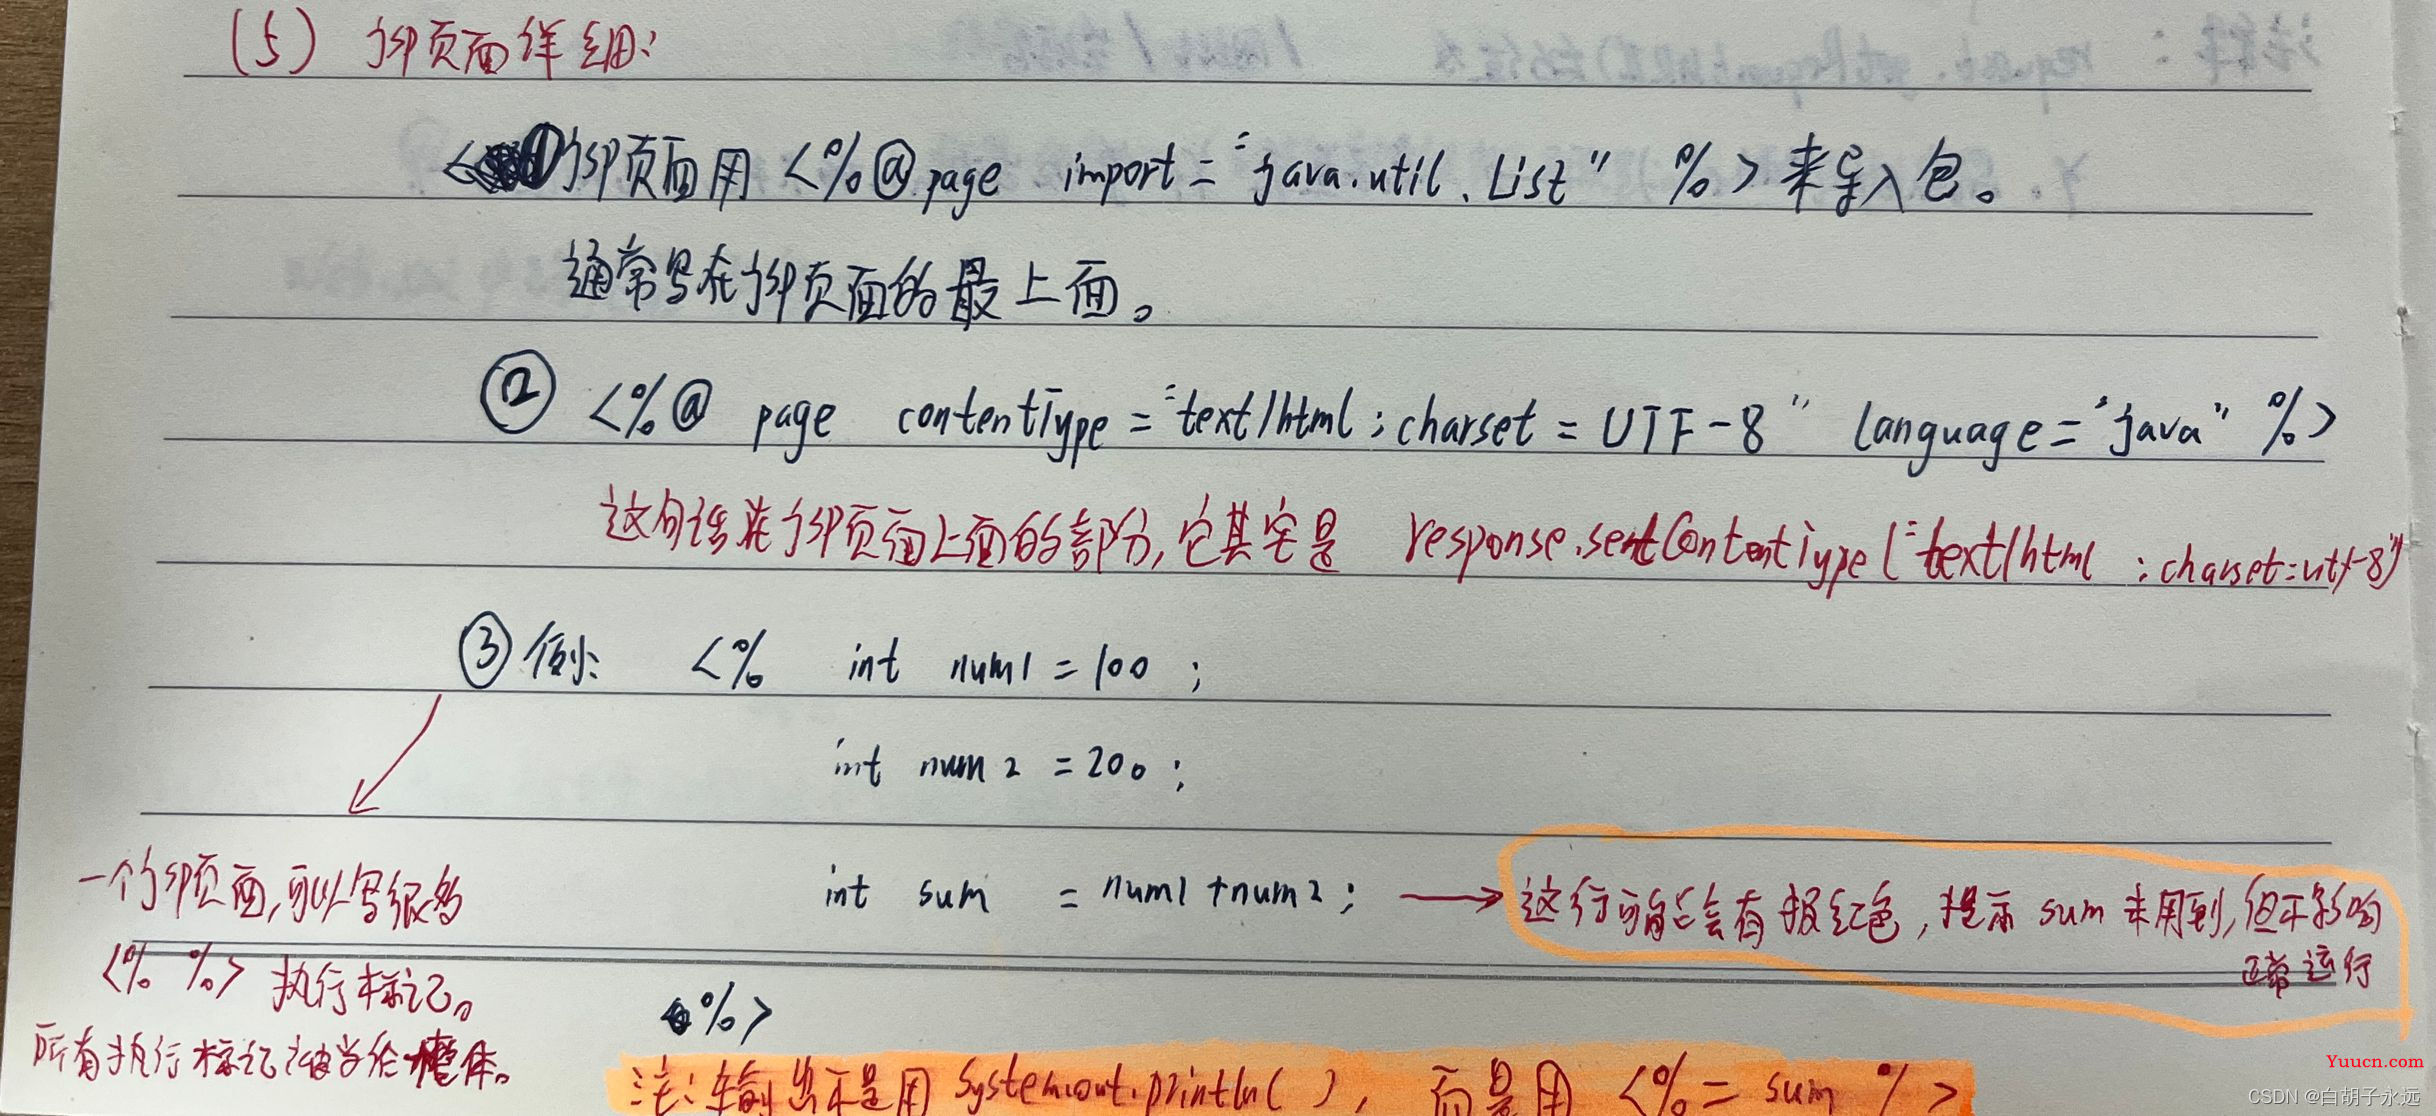 (5) jsp页面详细:
① jsp页面用 <%@ page import="java.util.List" %> 来导入包。
通常写在jsp页面的最上面。
② <%@ page contentType="text/html;charset=UTF-8" language="java" %>
这句话在jsp页面上面的部分,它其实是 response.sentContentType("text/html ;charset=utf-8")
③ 例: <% int num1 = 100 ;
int num2 = 200 ;
int sum = num1 + num2 ; → 这行可能会有报红色,提示 sum 未用到,但不影响
正常运行
一个jsp页面,可以写很多
<% %> 执行标记。
所有执行标记被当给整体。
%>
注:输出不是用 System.out.println( ), 而是用 <%= sum %>
Yuucn.com
CSDN @白胡子永远